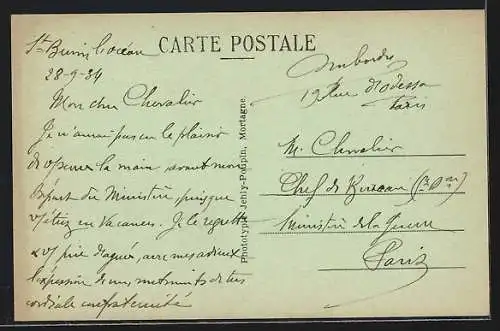 St Brévin l'Océan
28-9-34
Mon cher Chevalier
Je n'aurai pas eu le plaisir
de vous serrer la main avant mon
Départ du Ministère, puisque
vs étiez en vacances. Je le regrette
& vs prie d'agréer, avec mes adieux
l'expression de mes sentiments de très
cordiale confraternité
CARTE POSTALE
19 Rue d'Odessa
Paris
Phototypie Jehly-Poupin, Mortagne.
M. Chevalier
Chef de Bureau
Ministère de la Guerre
Paris